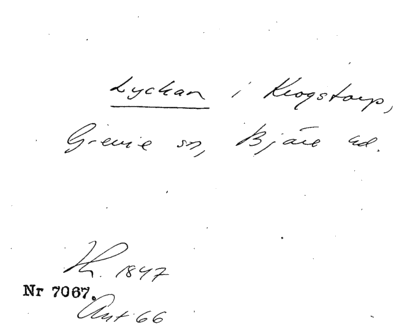 Lyckan i Krogstorp,
Grevie sn, Bjäre hd.
Th. 1847
Nr 7067.
Ant 66